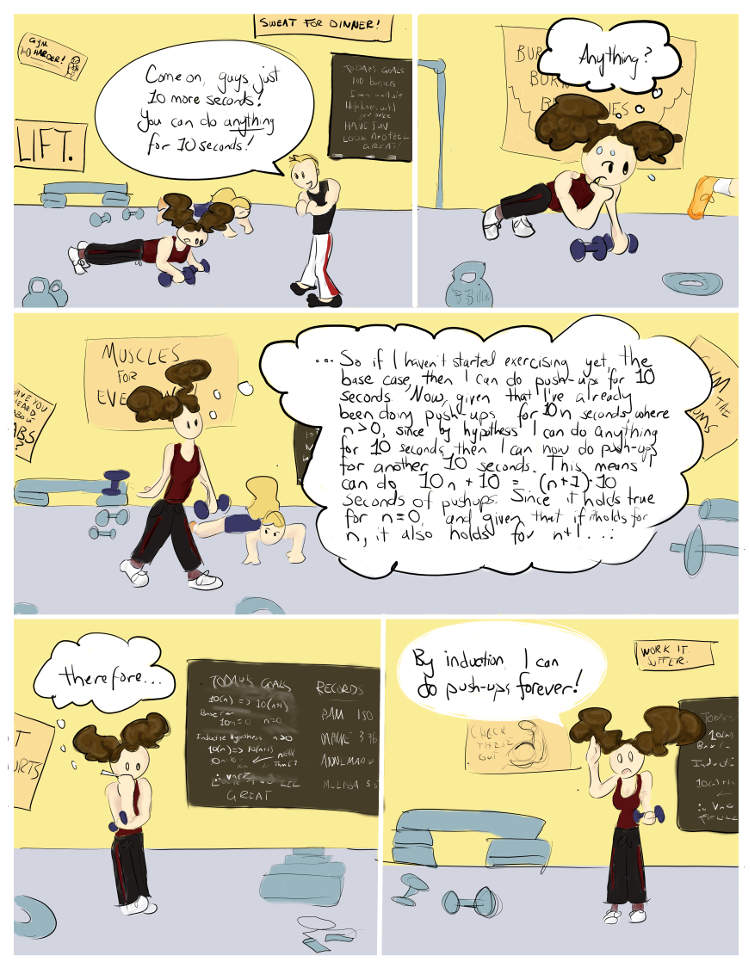 SWEAT FOR DINNER!
GYM
HARDER!
LIFT.
Come on, guys, just
10 more seconds!
You can do anything
for 10 seconds!
TODAY'S GOALS
100 burpees
HAVE FUN
GREAT!
Anything?
... So if I haven't started exercising yet, the
base case, then I can do push-ups for 10
seconds. Now, given that I've already
been doing push-ups for 10n seconds where
n>0, since by hypothesis I can do anything
for 10 seconds, then I can now do push-ups
for another 10 seconds. This means I
can do 10n + 10 = (n+1)·10
seconds of pushups. Since it holds true
for n=0, and given that if it holds for
n, it also holds for n+1 ...
MUSCLES
FOR
HAVE YOU
HEARD
ABOUT
ABS
?
therefore...
TODAY'S GOALS
10(n) => 10(n+1)
Base
10n=0 n=0
Inductive Hypothesis n>0
10(n) => 10(n+1)
GREAT
RECORDS
PAM 150
By induction, I can
do push-ups forever!
WORK IT.
SUFFER.
CHECK
THESE
OUT